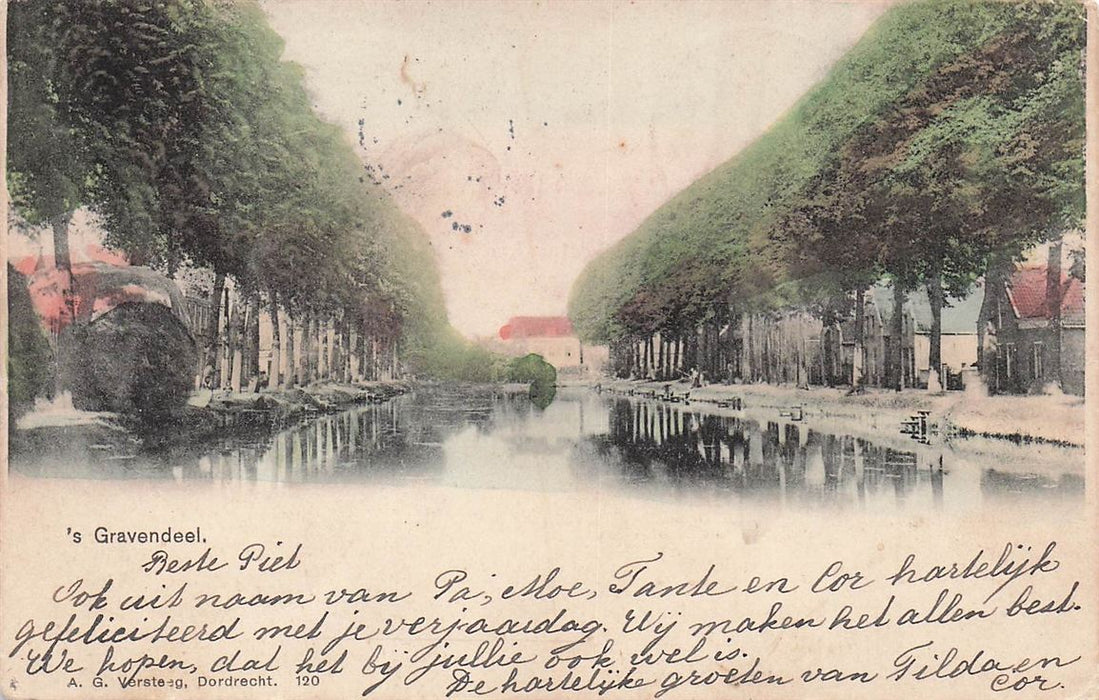 's Gravendeel.
Beste Piet
Ook uit naam van Pa, Moe, Tante en Cor hartelijk
gefeliciteerd met je verjaardag. Wij maken het allen best.
We hopen, dat het bij jullie ook wel is.
A. G. Versteeg, Dordrecht. 120
De hartelijke groeten van Tilda en
Cor.